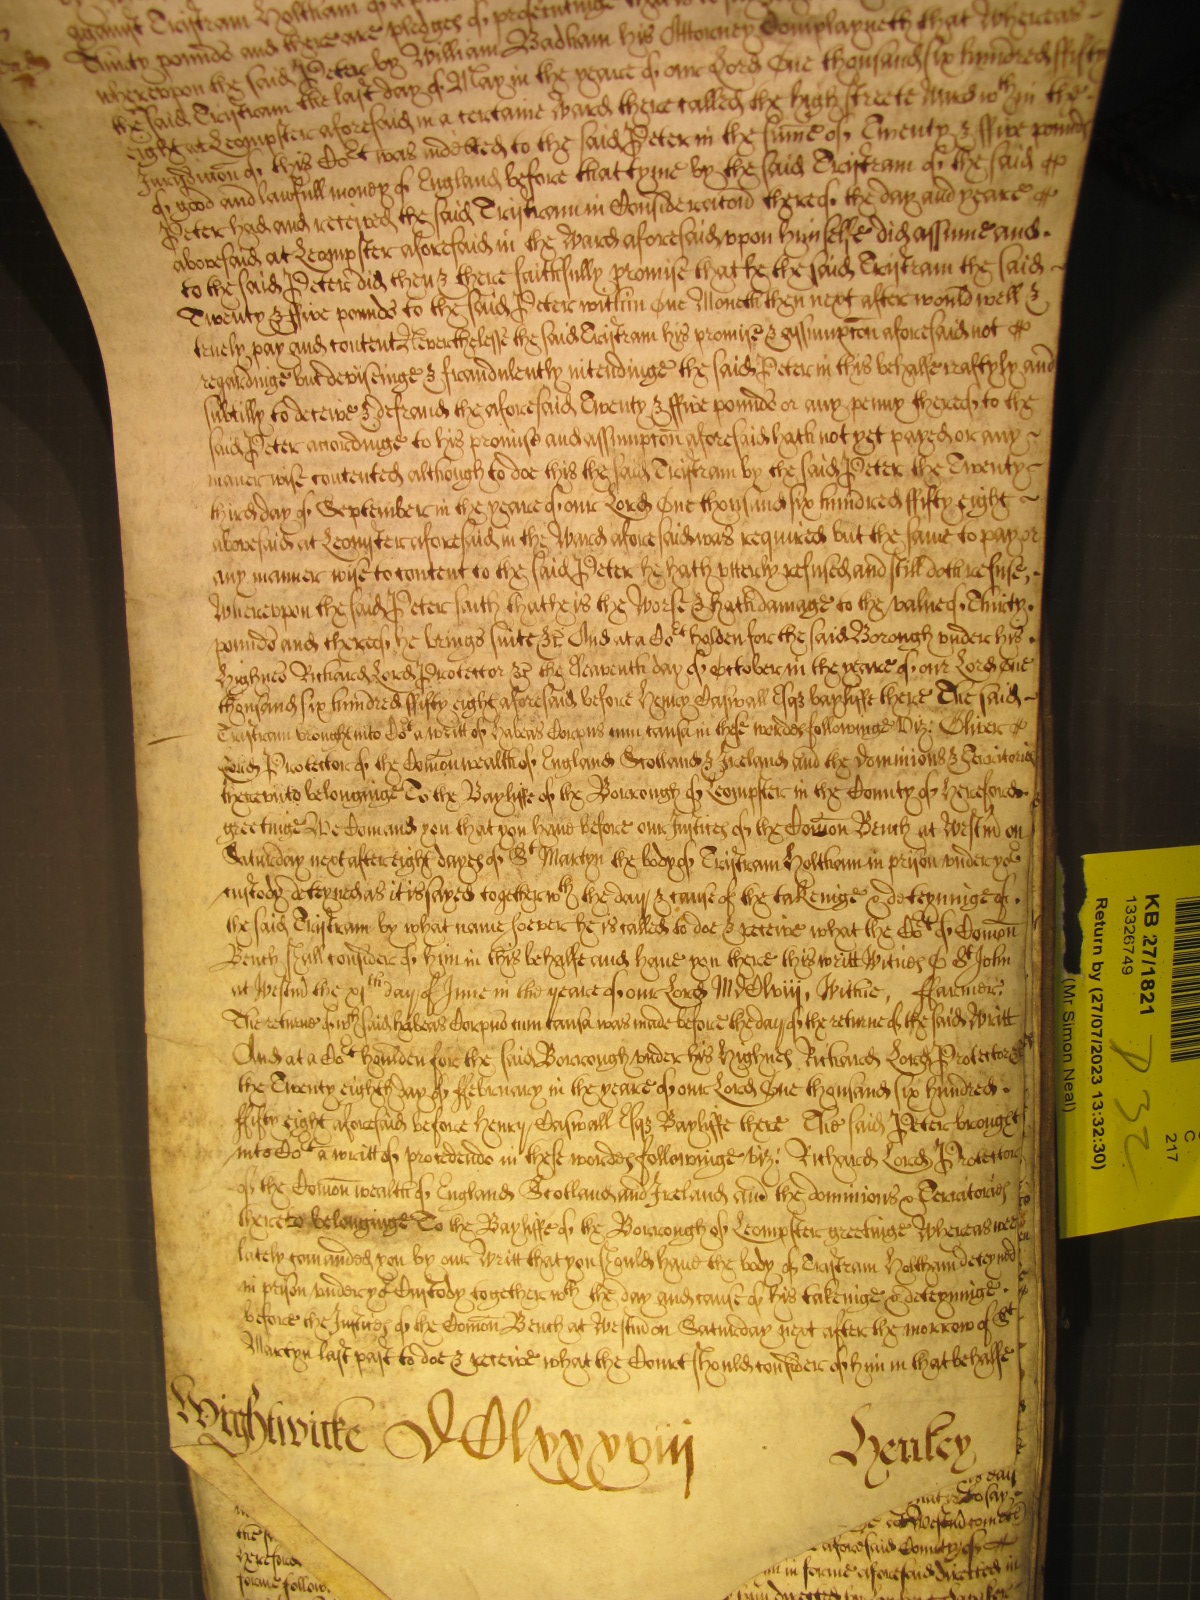 against Tristram Holtham of a
Thirty pounds and there are pledges of prosecutinge
whereupon the said Peter by William Badham his Attorney Complayneth that Whereas
the said Tristram the last day of May in the yeare of our Lord One thousand six hundred ffifty
eight at Leompster aforesaid in a certaine Ward there called the high streete Ward wth in the
Jurisdiccon of this Cort was indebted to the said Peter in the sume of Twenty & ffive pounds
of good and lawfull money of England before that tyme by the said Tristram of the said
Peter had and received the said Tristram in Consideracion thereof the day and yeare
abovesaid at Leompster aforesaid in the Ward aforesaid upon himselfe did assume and
to the said Peter did then & there faithfully promise that he the said Tristram the said
Twenty & ffive pounds to the said Peter within One Moneth then next after would well &
truely pay and content Neverthelesse the said Tristram his promise & assumpcon aforesaid not
regardinge but deviseinge & fraudulently intendinge the said Peter in this behalfe craftyly and
subtilly to deceive & defraud the aforesaid Twenty & ffive pounds or any penny thereof to the
said Peter accordinge to his promise and assumpcon aforesaid hath not yet payed or any
maner wise contented although to doe this the said Tristram by the said Peter the Twenty
third day of September in the yeare of our Lord One thousand six hundred ffifty eight
abovesaid at Leomster aforesaid in the Ward aforesaid was required but the same to pay or
any manner wise to content to the said Peter he hath utterly refused and still doth refuse,
Whereupon the said Peter saith that he is the Worse & hath damage to the value of Thirty
pounds and thereof he brings suite &c And at a Cort holden for the said Borough under his
Highnes Richard Lord Protector &c the Eleaventh day of October in the yeare of our Lord One
thousand six hundred ffifty eight aforesaid before Henry Caswall Esqr bayliffe there The said
Tristram brought into Cort a writt of Habeas Corpus cum causa in these wordes followinge Viz: Oliver
Lord Protector of the Comonwealth of England Scotland & Ireland and the Dominions & Territories
thereunto belonginge To the Bayliffe of the Borrough of Leompster in the County of Hereford
greetinge We Comand you that you have before our Justices of the Comon Bench at Westm on
Saturday next after eight dayes of St Martyn the body of Tristram Holtham in prison under yor
custody deteyned as it is sayed together wth the day & cause of the takeinge & deteyninge of
the said Tristram by what name soever he is called to doe & receive what the Cort of Comon
Bench shall consider of him in this behalfe and have you there this writt Witnes O St John
at Westm the xith day of June in the yeare of our Lord MDClviij, Wittne, ffarmer:
The returne of wch said habeas Corpus cum causa was made before the day of the returne of the said Writt
And at a Cort houlden for the said Borrough under his Highnes Richard Lord Protector
the Twenty eighth day of ffebruary in the yeare of our Lord One thousand six hundred
ffifty eight aforesaid before Henry Caswall Esqr Bayliffe there The said Peter brought
into Cort a writt of procedendo in these wordes followinge viz: Richard Lord Protector
of the Comon wealth of England Scotland and Ireland and the dominions & Territories
thereto belonginge To the Bayliffe of the Borrough of Leompster greetinge Whereas wee
lately comanded you by our Writt that you should have the body of Tristram Holtham deteyned
in prison under yor Custody together wth the day and cause of his takeinge & deteyninge
before the Justices of the Comon Bench at Westm on Saturday next after the morrow of St
Martyn last past to doe & receive what the Court should consider of him in that behalfe
Wightwicke DClxxxviii Henley
Hereford
forme follow.
aforesaid County of
in forme aforesaid directed
KB 27/1821
13326749
Return by (27/07/2023 13:32:30)
(Mr Simon Neal)
C
217